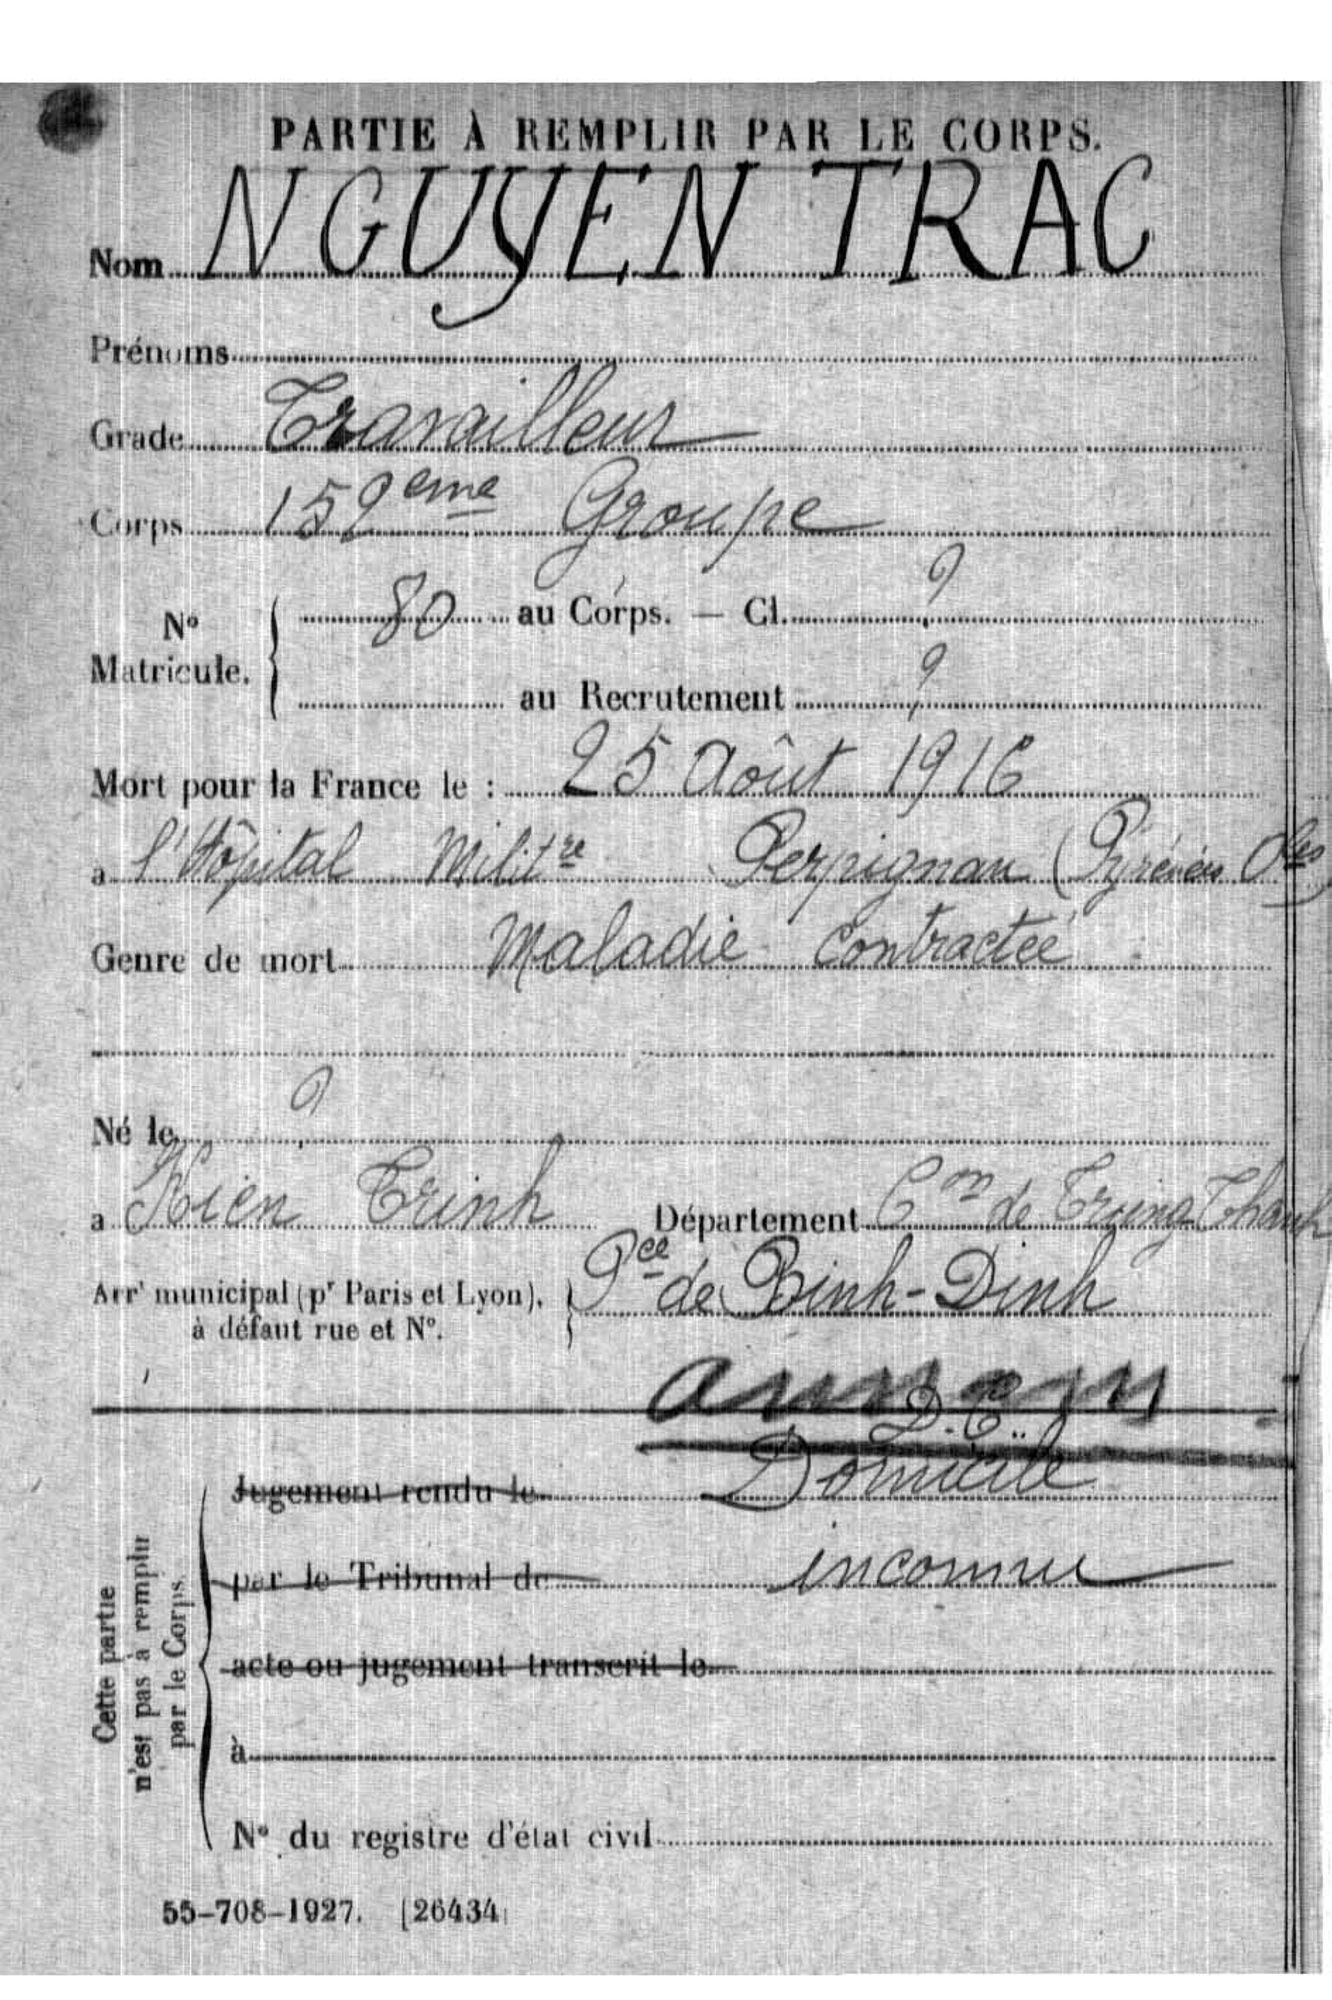 PARTIE À REMPLIR PAR LE CORPS.
Nom NGUYEN TRAC
Prénoms
Grade Travailleur
Corps 152eme Groupe
N° Matricule. 80 au Corps. — Cl. ?
au Recrutement ?
Mort pour la France le : 25 Août 1916
a l'Hôpital Militre Perpignan (Pyrénées Oles)
Genre de mort Maladie contractée
Né le ?
a Kien Trinh Département Con de Trung Thanh
Arrt municipal (pr Paris et Lyon), à défaut rue et N°. Pce de Binh-Dinh
annam
D.C.
Jugement rendu le Domicile
par le Tribunal de inconnu
acte ou jugement transcrit le
à
N° du registre d'état civil
Cette partie n'est pas à remplir par le Corps.
55-708-1927. [26434